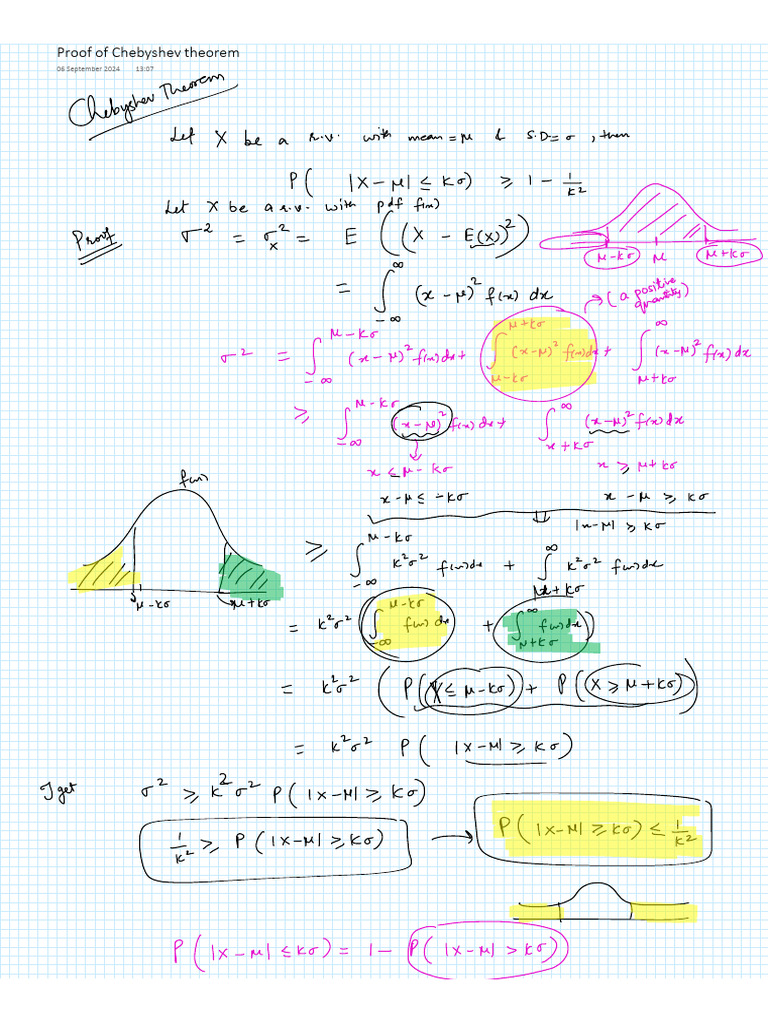 Proof of Chebyshev theorem
06 September 2024 13:07
Chebyshev Theorem
Let X be a r.v. with mean = μ & S.D = σ , then
P( |X − μ| ≤ Kσ) ≥ 1 − 1/K²
Let X be a r.v. with pdf f(x)
Proof σ² = σₓ² = E((X − E(X))²)
μ−Kσ μ μ+Kσ
= ∫_{−∞}^{∞} (x − μ)² f(x) dx
→ (a positive quantity)
σ² = ∫_{−∞}^{μ−Kσ} (x − μ)² f(x) dx + ∫_{μ−Kσ}^{μ+Kσ} (x−μ)² f(x) dx + ∫_{μ+Kσ}^{∞} (x−μ)² f(x) dx
≥ ∫_{−∞}^{μ−Kσ} (x−μ)² f(x) dx + ∫_{x+Kσ}^{∞} (x−μ)² f(x) dx
↓
x ≤ μ − Kσ x ≥ μ+Kσ
f(x)
x−μ ≤ −Kσ x − μ ≥ Kσ
⇓
|x−μ| ≥ Kσ
≥ ∫_{−∞}^{μ−Kσ} K²σ² f(x) dx + ∫_{μ+Kσ}^{∞} K²σ² f(x) dx
μ−Kσ μ+Kσ
= K²σ² (∫_{−∞}^{μ−Kσ} f(x) dx + ∫_{μ+Kσ}^{∞} f(x) dx)
= K²σ² (P(X ≤ μ−Kσ) + P(X ≥ μ+Kσ))
= K²σ² P( |X−μ| ≥ Kσ)
I get σ² ≥ K²σ² P( |X−μ| ≥ Kσ)
1/K² ≥ P( |X−μ| ≥ Kσ) → P( |X−μ| ≥ Kσ) ≤ 1/K²
P( |X−μ| ≤ Kσ) = 1 − P( |X−μ| > Kσ)